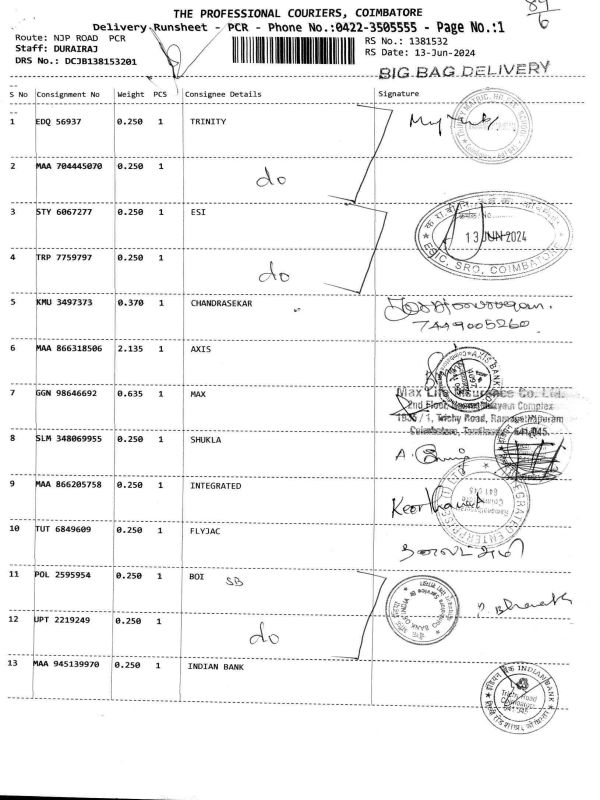 THE PROFESSIONAL COURIERS, COIMBATORE
Delivery Runsheet - PCR - Phone No.:0422-3505555 - Page No.:1
Route: NJP ROAD PCR
RS No.: 1381532
Staff: DURAIRAJ
RS Date: 13-Jun-2024
DRS No.: DCJB138153201
BIG BAG DELIVERY
S No Consignment No Weight PCS Consignee Details Signature
1 EDQ 56937 0.250 1 TRINITY
2 MAA 704445070 0.250 1 do
3 STY 6067277 0.250 1 ESI
13 JUN 2024
ESIC, SRO, COIMBATORE
4 TRP 7759797 0.250 1 do
5 KMU 3497373 0.370 1 CHANDRASEKAR
7449005260
6 MAA 866318506 2.135 1 AXIS
AXIS BANK
7 GGN 98646692 0.635 1 MAX
Max Life Insurance Co. Ltd.
2nd Floor, Complex
Trichy Road,
8 SLM 348069955 0.250 1 SHUKLA
9 MAA 866205758 0.250 1 INTEGRATED
INTEGRATED ENTERPRISES
Keerthana
10 TUT 6849609 0.250 1 FLYJAC
11 POL 2595954 0.250 1 BOI SB
BANK OF INDIA
P. Bharath
12 UPT 2219249 0.250 1 do
13 MAA 945139970 0.250 1 INDIAN BANK
INDIAN BANK
Trichy Road
Coimbatore
641 045